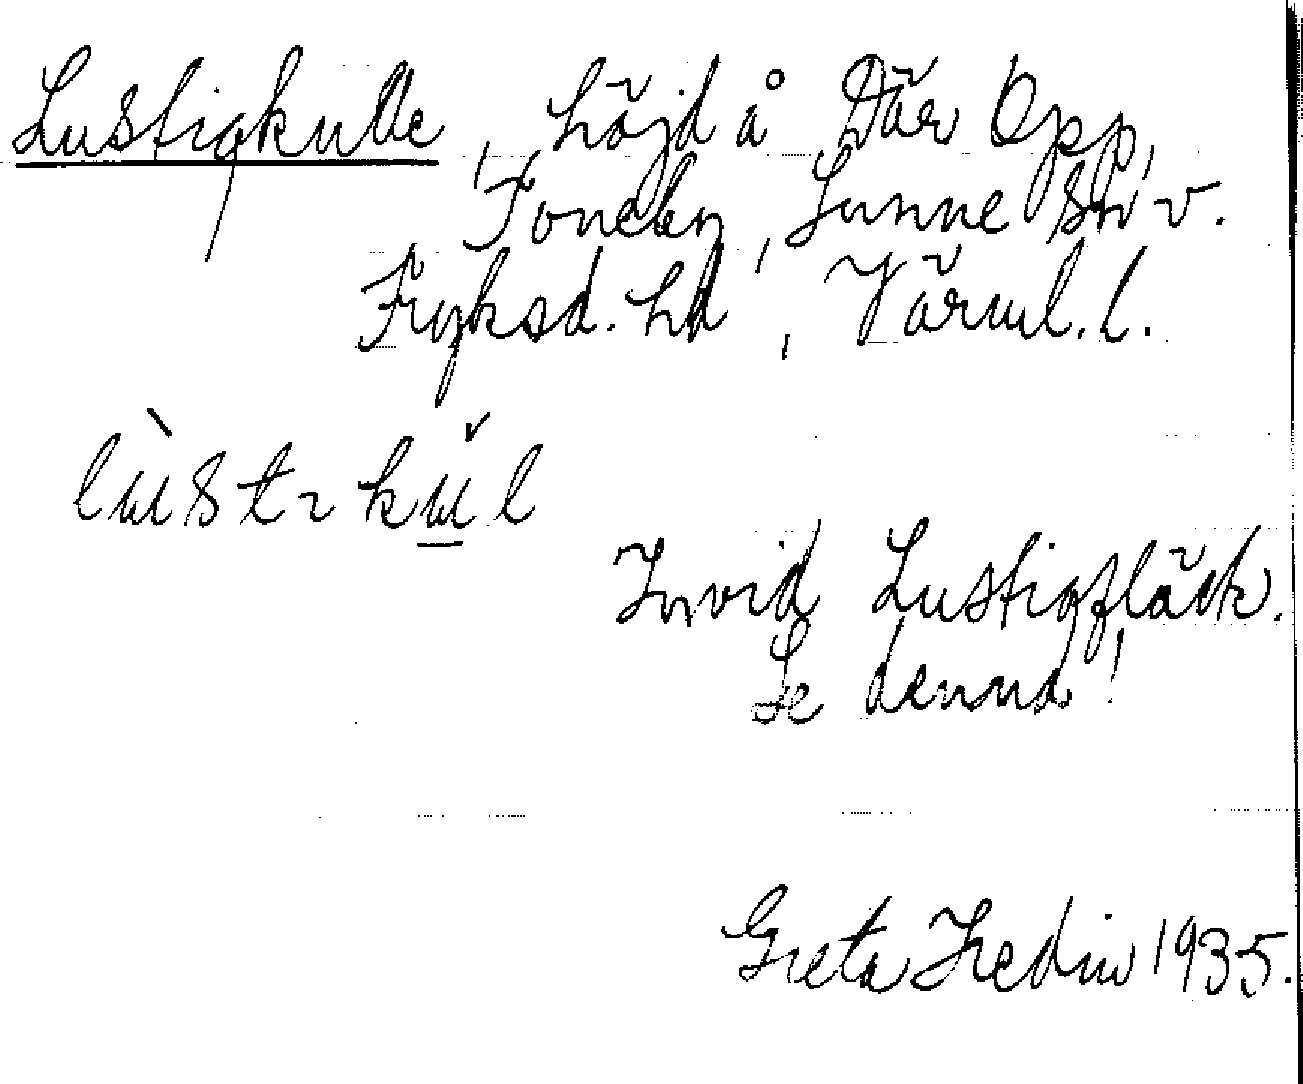 Lustigkulle, höjd å Där Opp,
Toneby, Sunne sn v.
Fryksd. hd, Värml. l.
lùstɩkŭl
Invid Lustigfläck.
Se denna!
Greta Hedin 1935.